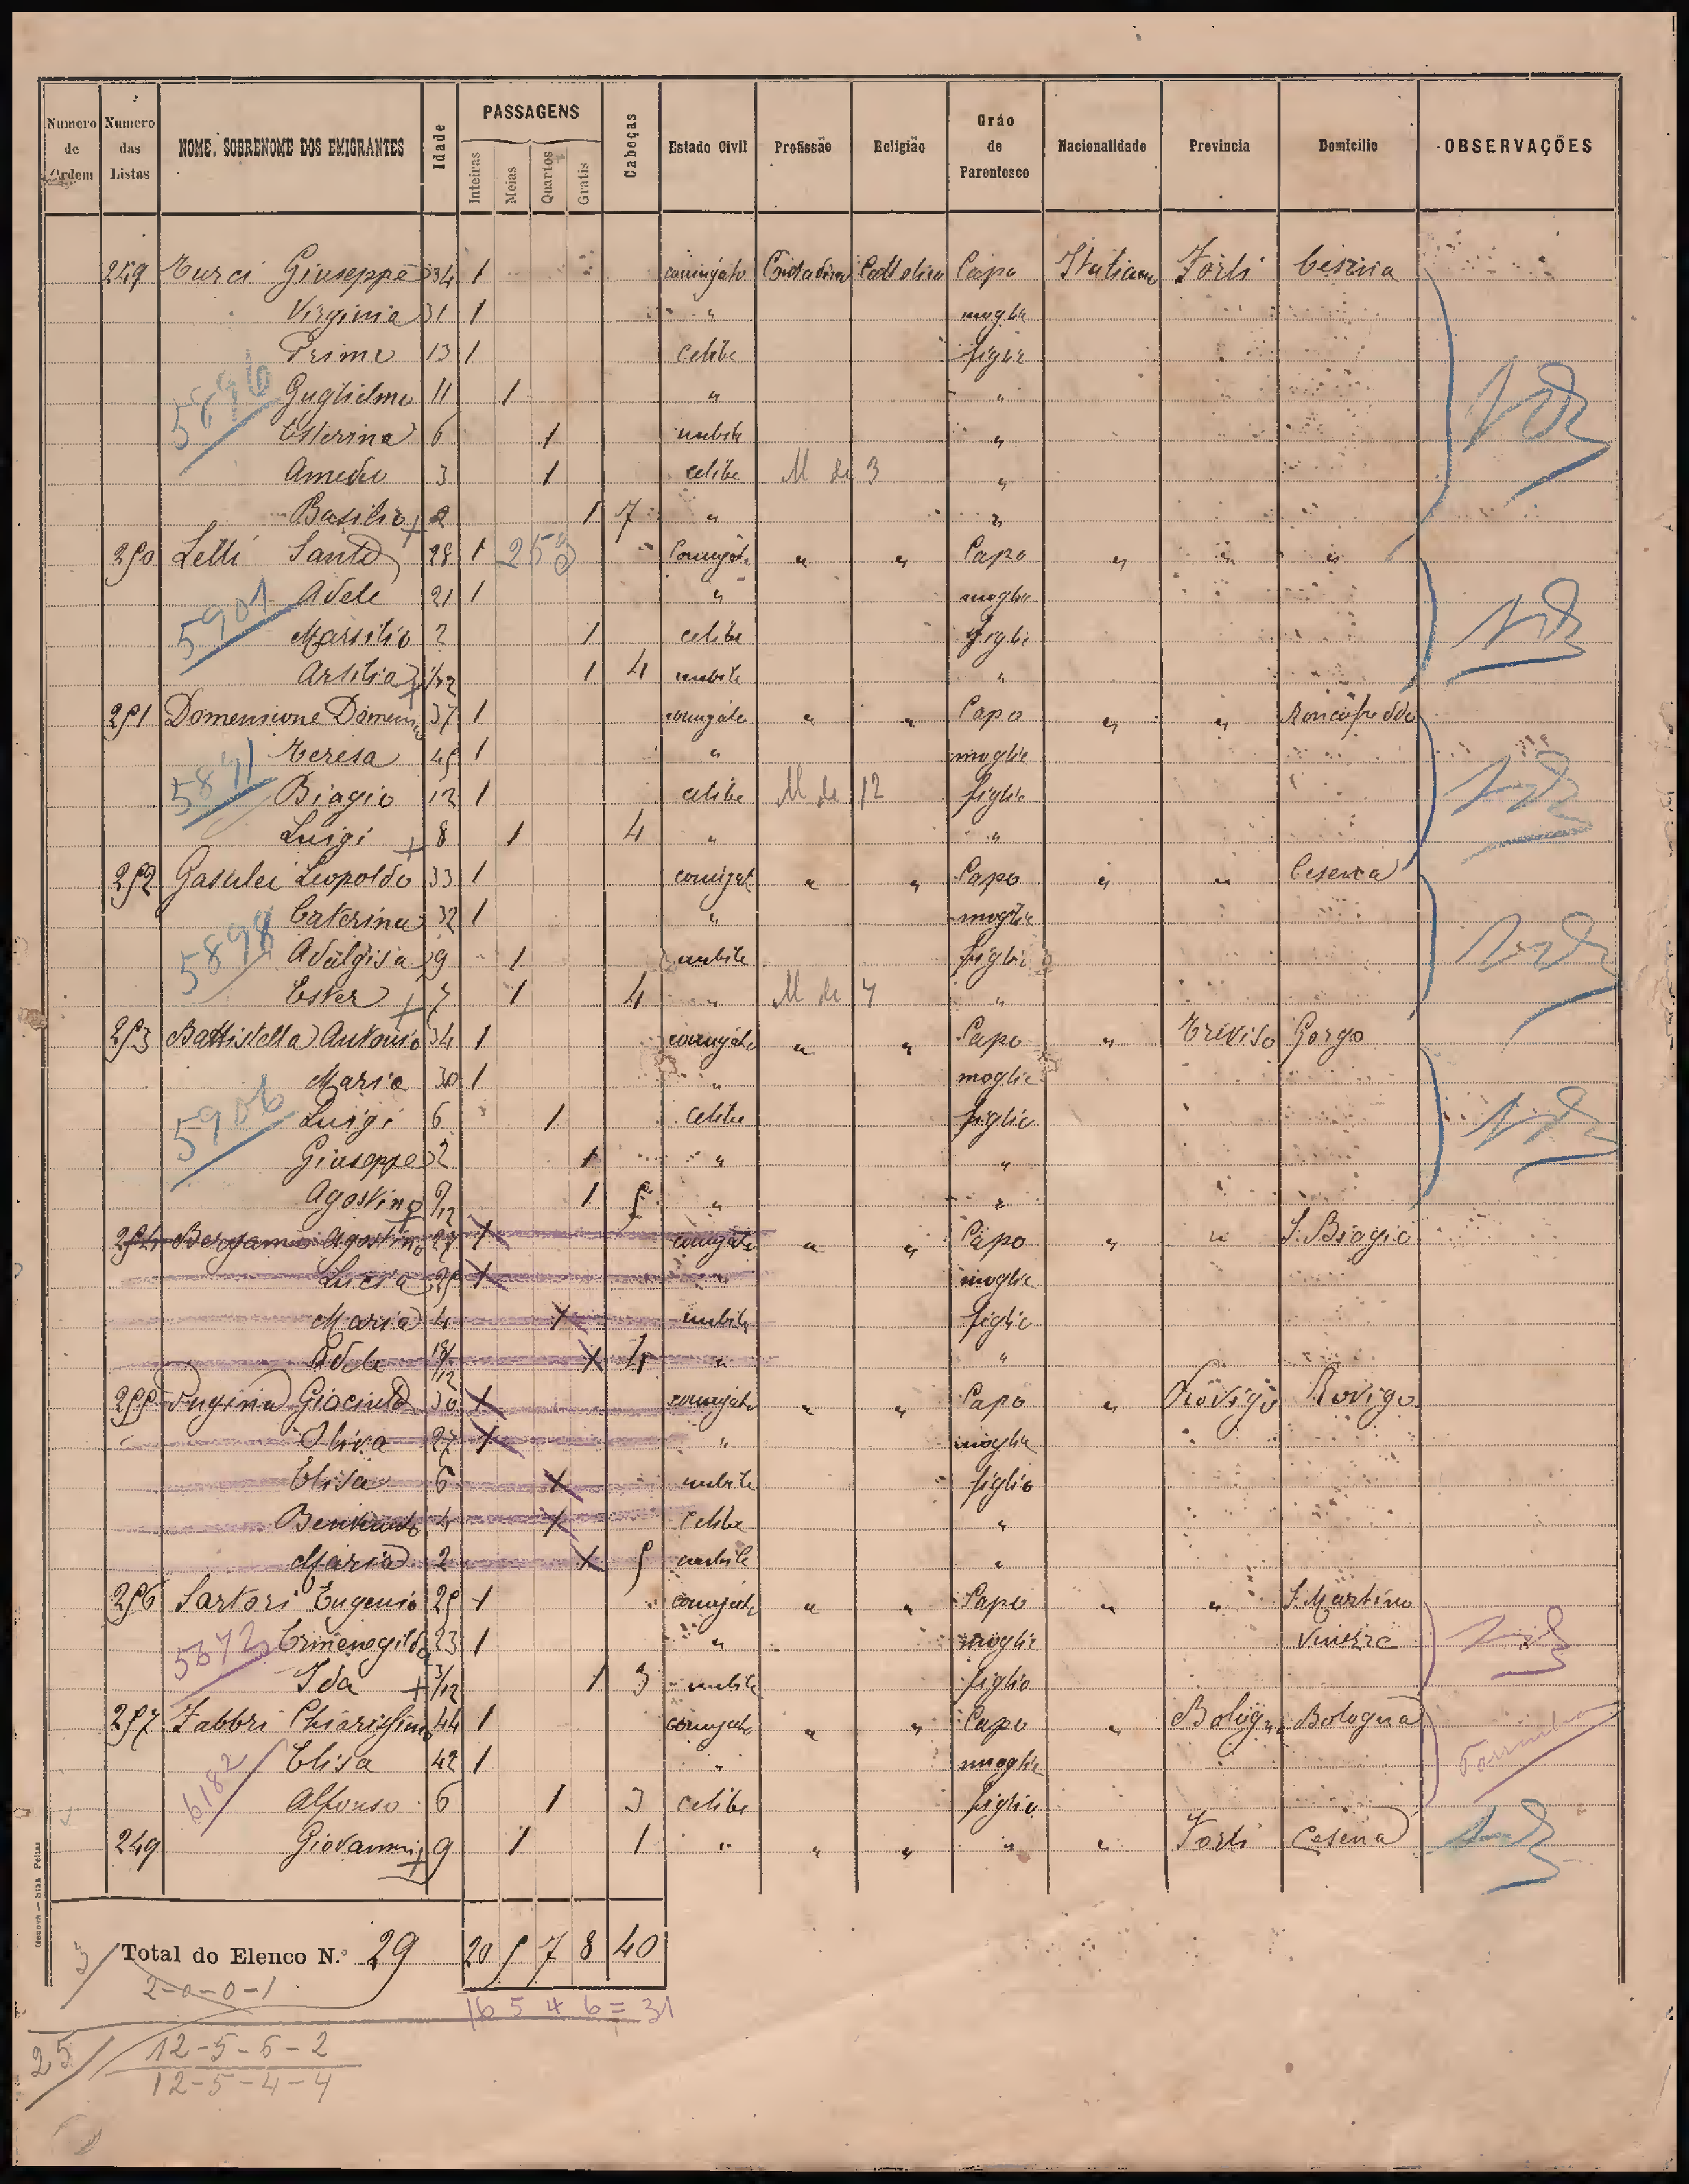 Numero de Ordem Numero das Listas NOME, SOBRENOME DOS EMIGRANTES Idade PASSAGENS Inteiras Meias Quartos Gratis Cabeças Estado Civil Profissão Religião Gráo de Parentesco Nacionalidade Provincia Domicilio OBSERVAÇÕES
249 Turci Giuseppe 34 1 coniugato Contadino Cattolica Capo Italiana Forli Cesena
Virginia 31 1 " moglie
Primo 13 1 celibe figlio
5896 Guglielmo 11 1 " "
Esterina 6 1 nubile "
Amedeo 3 1 celibe M de 3 "
Basilio + 2 1 7 " "
250 Lelli Santo 28 1 253 coniugato " " Capo " " "
Adele 21 1 " moglie
5901 Marsilio 2 1 celibe figlio
Arsilia + 1/12 1 4 nubile "
251 Domensione 37 1 coniugato " " Capo " " Roncofreddo
Teresa 45 1 " moglie
5871 Biagio 12 1 celibe M de 12 figlio
Luigi + 8 1 4 " "
252 Leopoldo 33 1 coniugato " " Capo " " Cesena
Caterina 32 1 " moglie
5898 Adalgisa 9 1 nubile figlio
Ester + 7 1 4 " M de 7 "
253 Battistella Antonio 34 1 coniugato " " Capo " Treviso Gorgo
Maria 30 1 " moglie
5906 Luigi 6 1 celibe figlio
Giuseppe 2 1 " "
Agostino + 9/12 1 5 " "
254 Bergamo Agostino 27 1 coniugato " " Capo " " S. Biagio
Lucia 25 1 " moglie
Maria 4 1 nubile figlio
Adele 18/12 1 4 " "
255 Giacinto 30 1 coniugato " " Capo " Rovigo Rovigo
Oliva 27 1 " moglie
Elisa 6 1 nubile figlio
Benvenuto 4 1 celibe "
Maria 2 1 5 nubile "
256 Sartori Eugenio 25 1 coniugato " " Capo " " S. Martino
5872 Ermenegilda 23 1 " moglie Venezze
Ida + 3/12 1 3 nubile figlio
257 Fabbri Chiarissimo 44 1 coniugato " " Capo " Bologna Bologna
6182 Elisa 42 1 " moglie
Alfonso 6 1 3 celibe figlio
249 Giovanni + 9 1 1 " " " " " Forli Cesena
Total do Elenco N.º 29 20 5 7 8 40
3/ 2-0-0-1
16 5 4 6 = 31
25/ 12-5-6-2
12-5-4-4